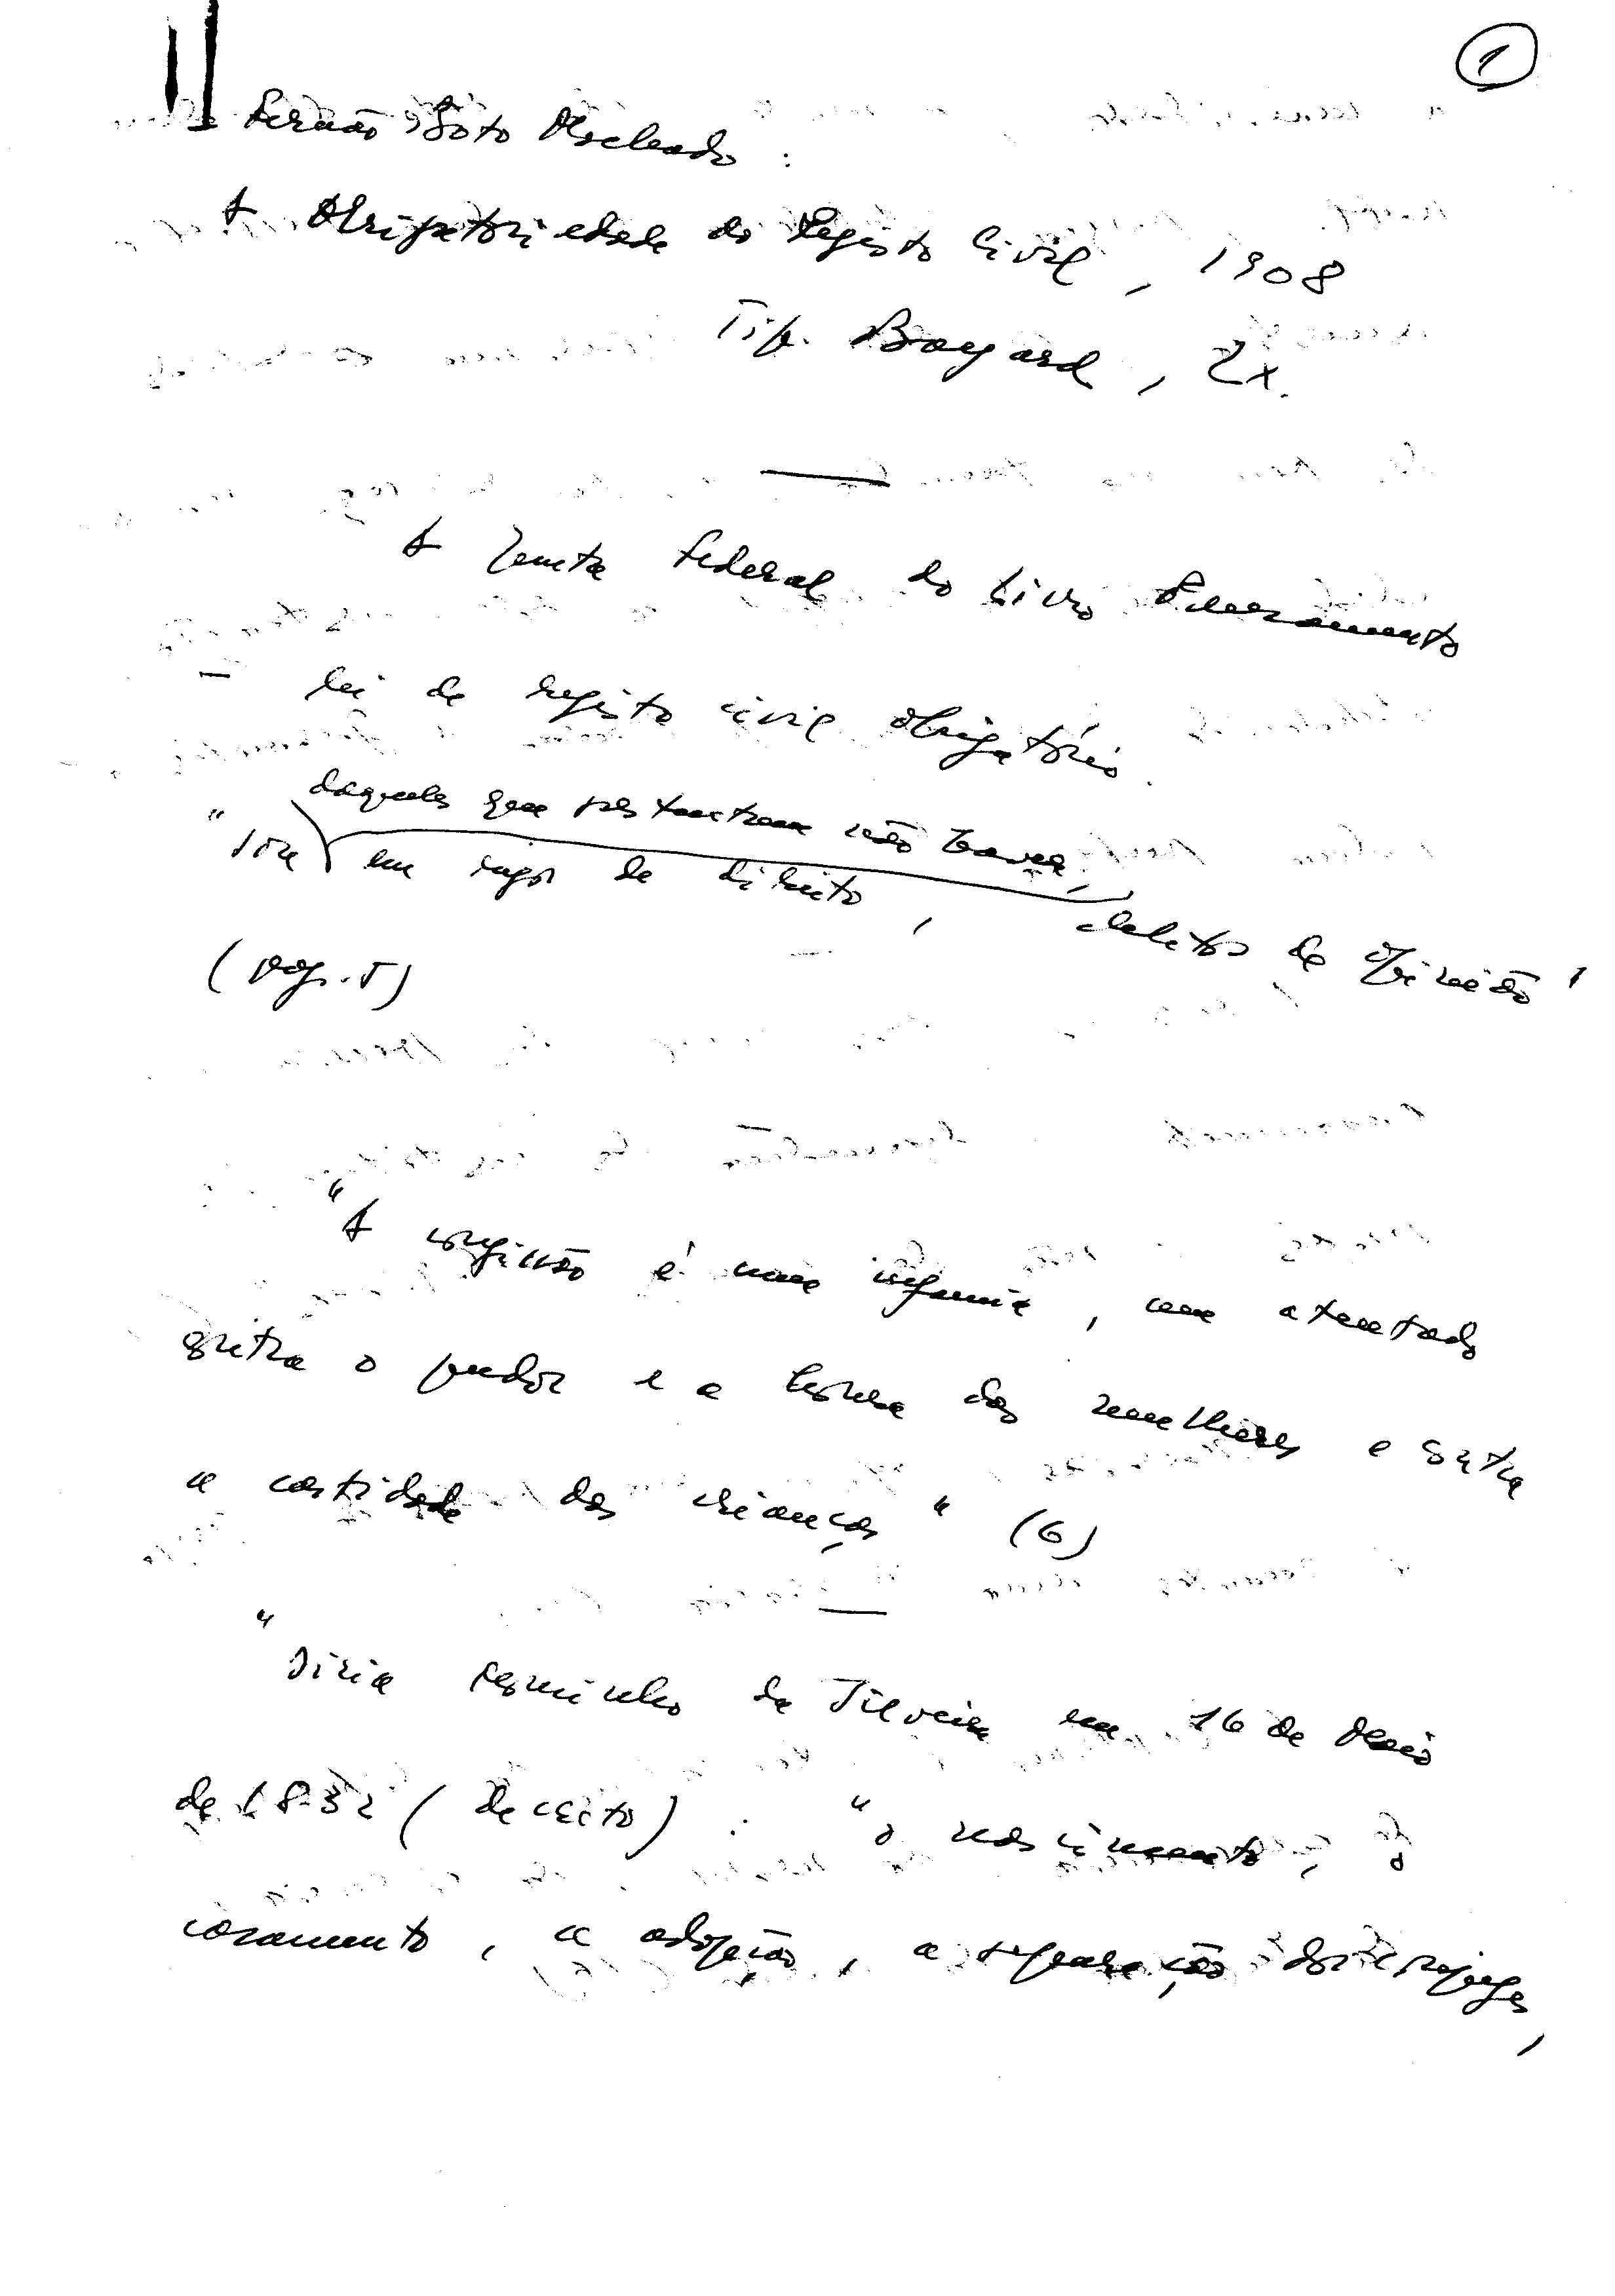 1
Fernão Boto Machado :
A Obrigatoriedade do Registo Civil, 1908
Tip. Bayard, Lx.
A Junta Federal do Livro Pensamento
— lei de registo civil obrigatório.
daqueles que sustentam não haver,
" em rigor de direito, delitos de opinião"
(pag. 5)
"A confissão é uma infamia, um atentado
contra o pudor e a honra das mulheres e contra
a castidade das crianças" (6)
"Dizia Mouzinho da Silveira em 16 de Maio
de 1832 (decreto) : "o nascimento, o
casamento, a adopção, a separação dos conjuges,